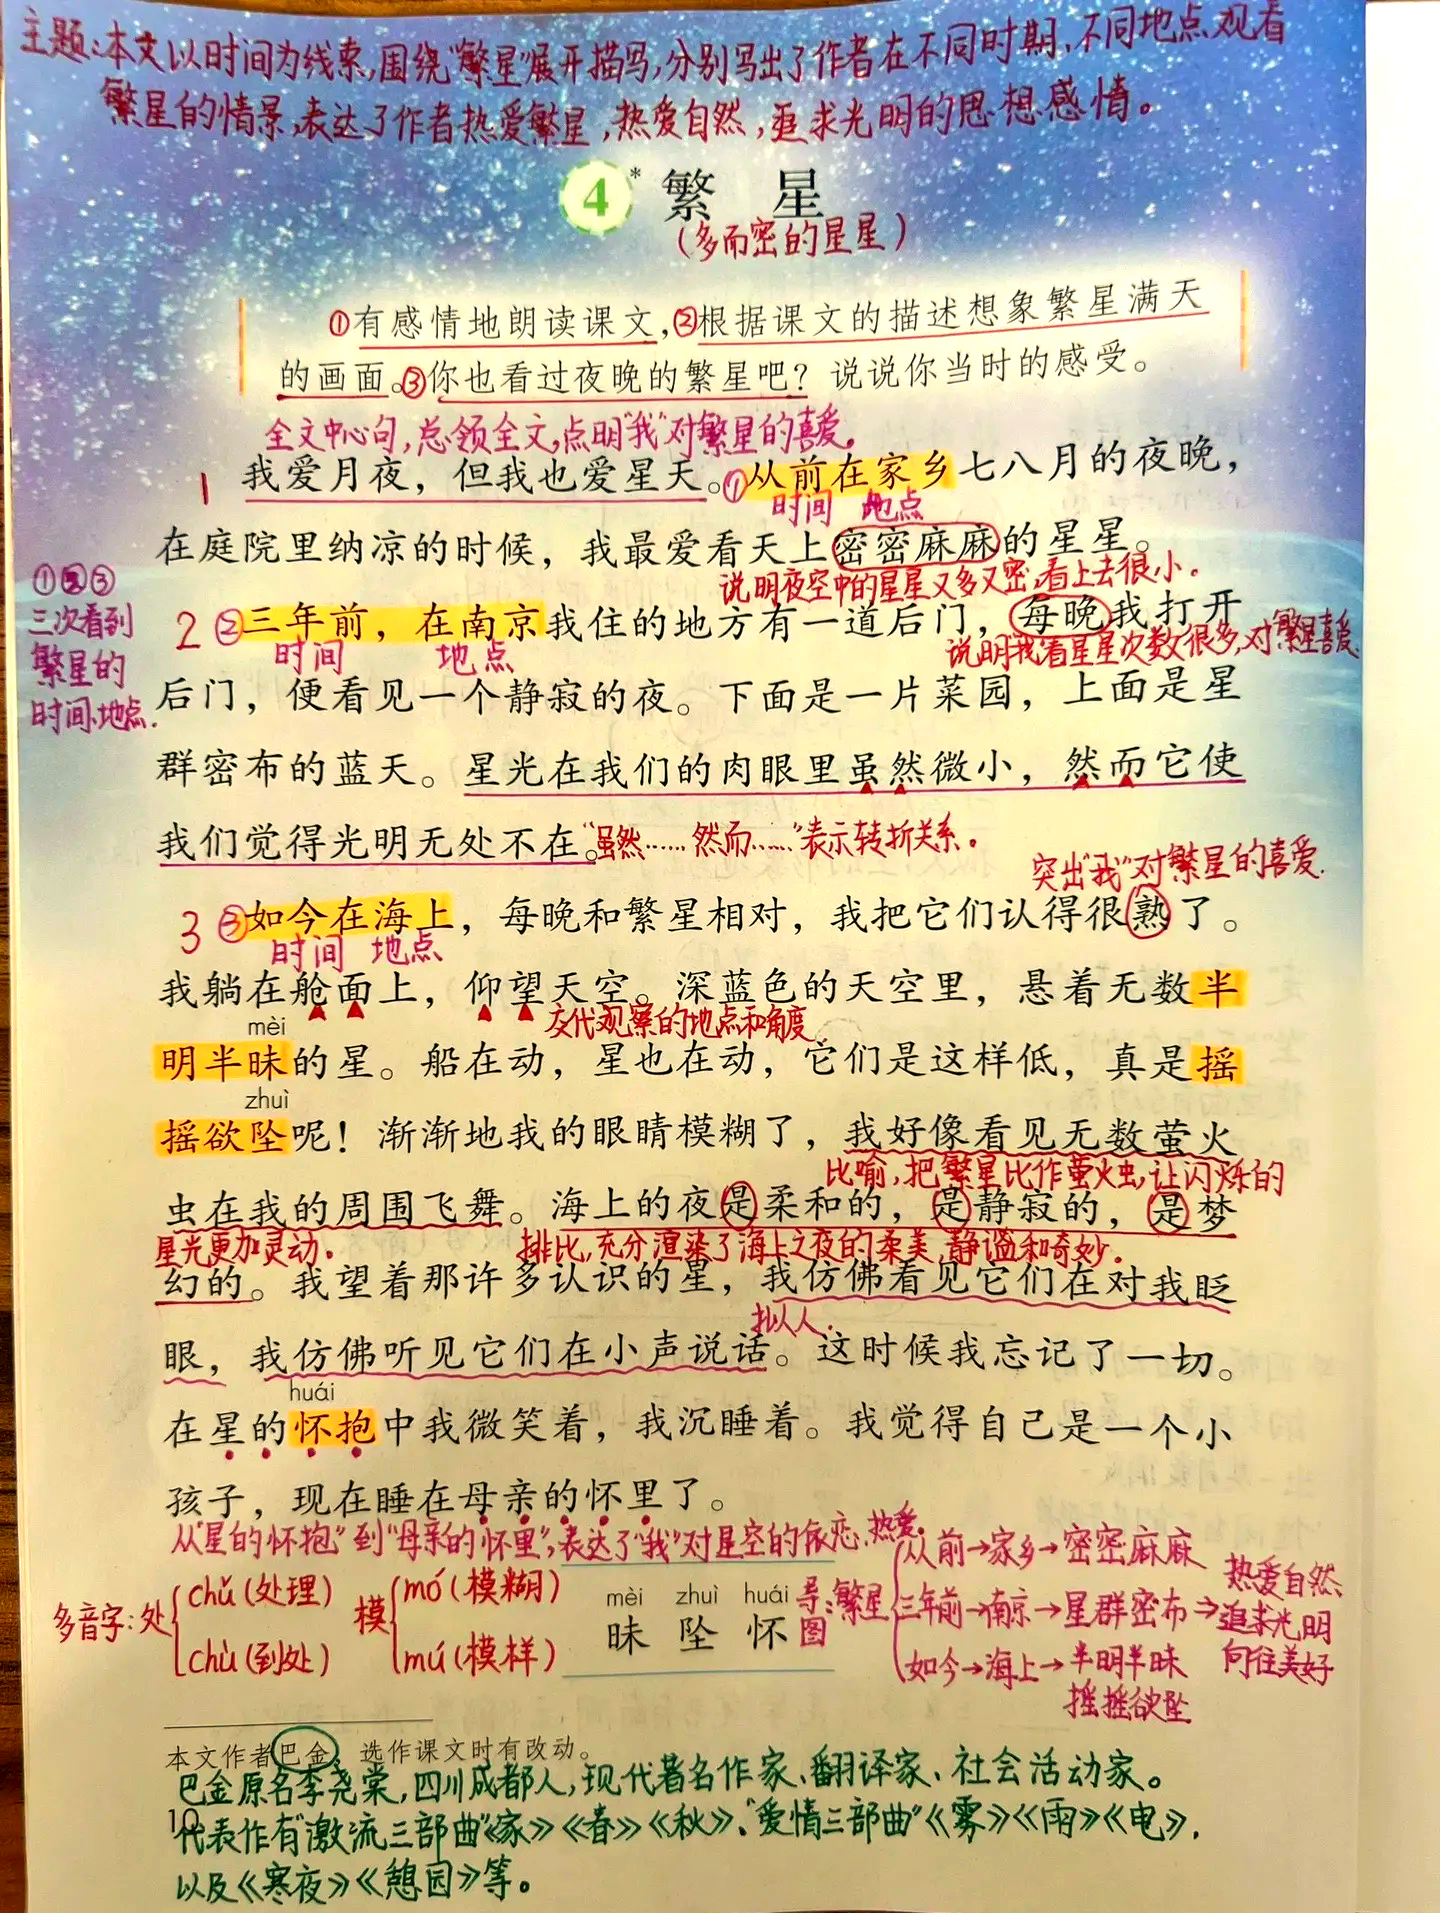 主题:本文以时间为线索,围绕"繁星"展开描写,分别写出了作者在不同时期、不同地点观看
繁星的情景,表达了作者热爱繁星,热爱自然,追求光明的思想感情。
4* 繁 星
(多而密的星星)
①有感情地朗读课文,②根据课文的描述想象繁星满天
的画面。③你也看过夜晚的繁星吧?说说你当时的感受。
全文中心句,总领全文,点明"我"对繁星的喜爱。
1 我爱月夜,但我也爱星天。①从前在家乡七八月的夜晚,
时间 地点
在庭院里纳凉的时候,我最爱看天上密密麻麻的星星。
说明夜空中的星星又多又密,看上去很小。
①②③
三次看到
繁星的
时间、地点.
2 ②三年前,在南京我住的地方有一道后门,每晚我打开
时间 地点
说明我看星星次数很多,对繁星喜爱.
后门,便看见一个静寂的夜。下面是一片菜园,上面是星
群密布的蓝天。星光在我们的肉眼里虽然微小,然而它使
我们觉得光明无处不在。"虽然……然而……"表示转折关系。
突出"我"对繁星的喜爱.
3 ③如今在海上,每晚和繁星相对,我把它们认得很熟了。
时间 地点
我躺在舱面上,仰望天空。深蓝色的天空里,悬着无数半
交代观察的地点和角度。
mèi
明半昧的星。船在动,星也在动,它们是这样低,真是摇
zhuì
摇欲坠呢!渐渐地我的眼睛模糊了,我好像看见无数萤火
比喻,把繁星比作萤火虫,让闪烁的
虫在我的周围飞舞。海上的夜是柔和的,是静寂的,是梦
星光更加灵动。 排比,充分渲染了海上之夜的柔美,静谧和奇妙。
幻的。我望着那许多认识的星,我仿佛看见它们在对我眨
拟人.
眼,我仿佛听见它们在小声说话。这时候我忘记了一切。
huái
在星的怀抱中我微笑着,我沉睡着。我觉得自己是一个小
孩子,现在睡在母亲的怀里了。
从"星的怀抱"到"母亲的怀里",表达了"我"对星空的依恋、热爱。
多音字:处
chǔ(处理)
chù(到处)
模
mó(模糊)
mú(模样)
mèi zhuì huái
昧 坠 怀
导图:繁星
从前→家乡→密密麻麻
三年前→南京→星群密布
如今→海上→半明半昧
摇摇欲坠
⇒热爱自然、
追求光明
向往美好
本文作者巴金,选作课文时有改动。
巴金原名李尧棠,四川成都人,现代著名作家、翻译家、社会活动家。
10
代表作有"激流三部曲"《家》《春》《秋》、"爱情三部曲"《雾》《雨》《电》,
以及《寒夜》《憩园》等。